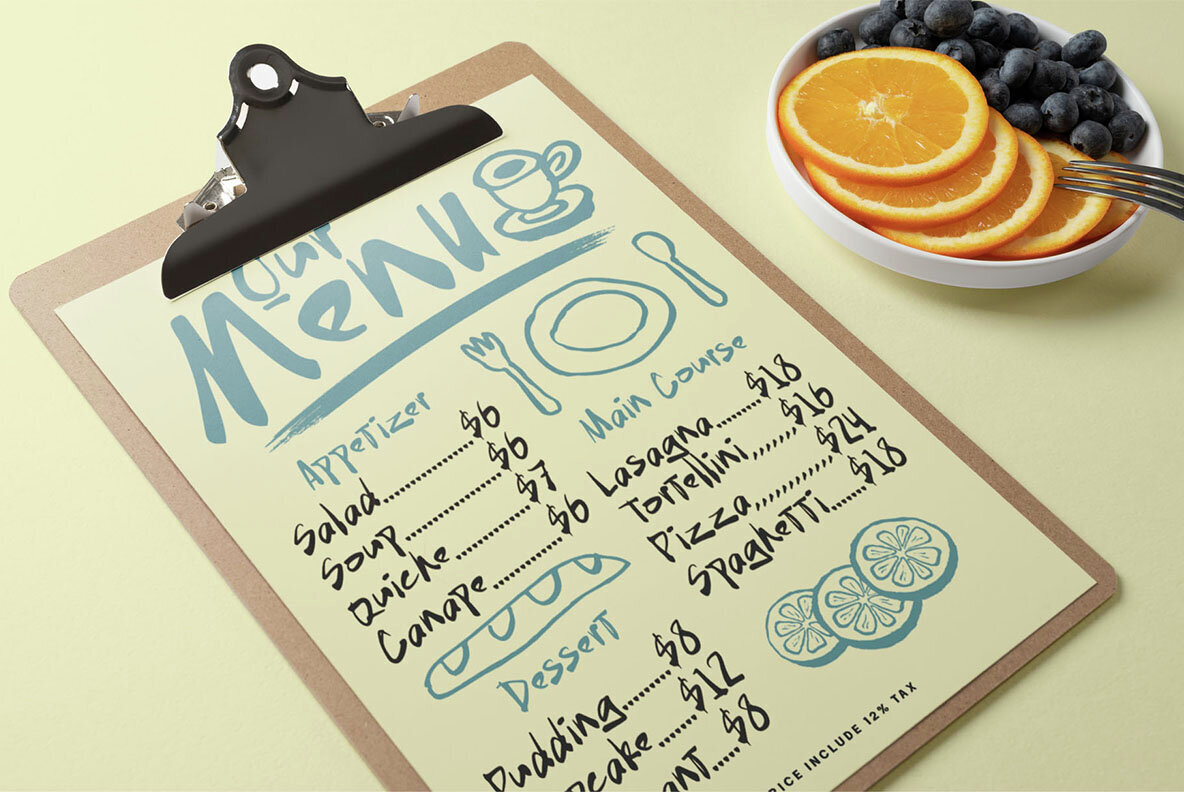 Our
Menu
Appetizer
Salad..........$6
Soup..........$6
Quiche..........$7
Canape..........$6
Main Course
Lasagna.......$18
Tortellini,,,,,,$16
Pizza,,,,,,,,,,,$24
Spaghetti.....$18
Dessert
Pudding.......$8
$12
$8
INCLUDE 12% TAX